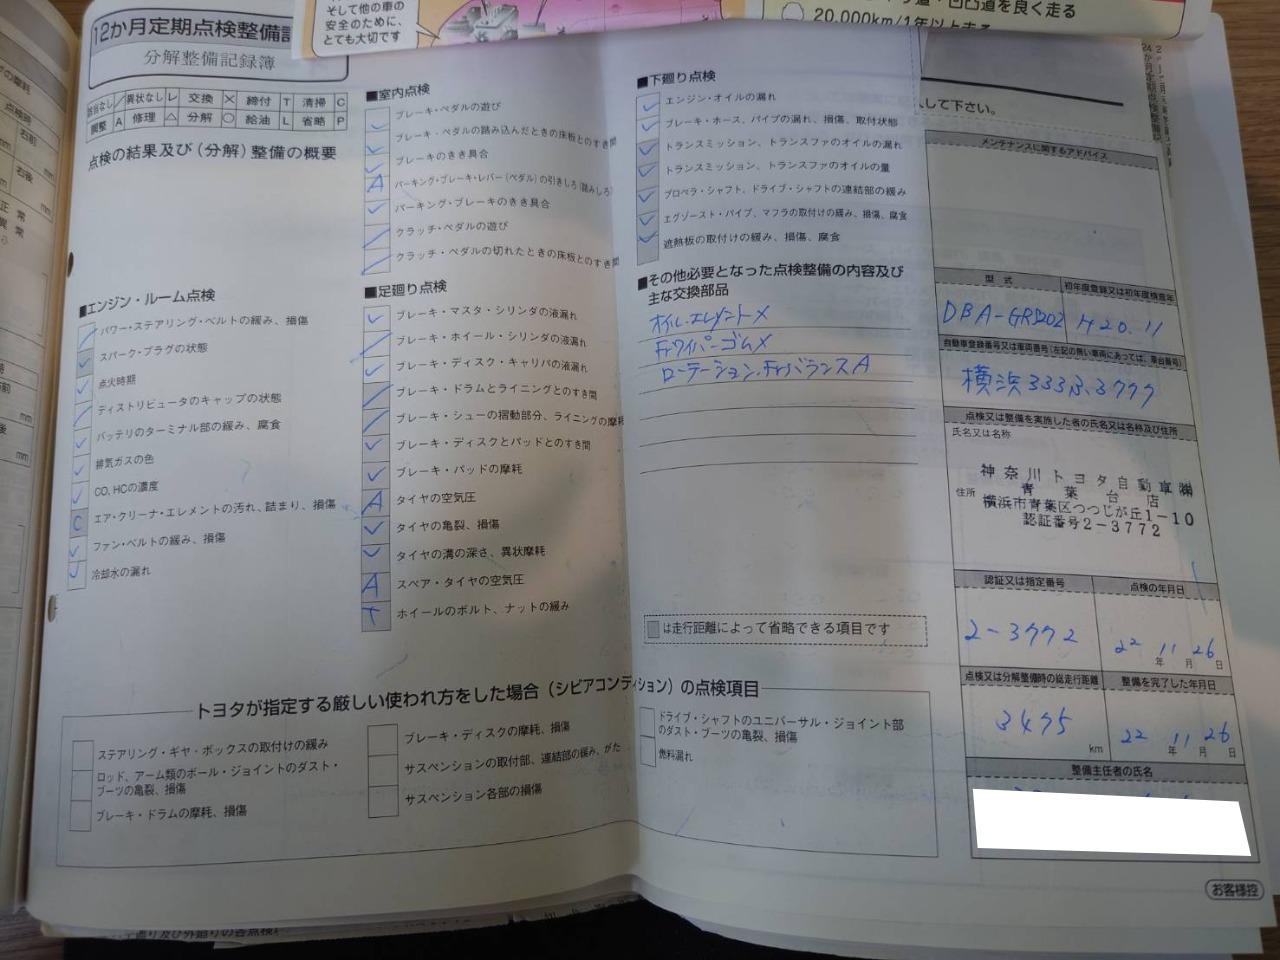 そして他の車の
安全のために、
とても大切です
凹凸道を良く走る
20,000km/1年以上走
12か月定期点検整備記
分解整備記録簿
該当なし／ 異状なしレ 交換× 締付T 清掃C
調整A 修理△ 分解○ 給油L 省略P
点検の結果及び（分解）整備の概要
■エンジン・ルーム点検
パワー・ステアリング・ベルトの緩み、損傷
レ スパーク・プラグの状態
レ 点火時期
ディストリビュータのキャップの状態
レ バッテリのターミナル部の緩み、腐食
レ 排気ガスの色
レ CO、HCの濃度
C エア・クリーナ・エレメントの汚れ、詰まり、損傷
レ ファン・ベルトの緩み、損傷
レ 冷却水の漏れ
■室内点検
レ ブレーキ・ペダルの遊び
レ ブレーキ・ペダルの踏み込んだときの床板とのすき間
レ ブレーキのきき具合
A パーキング・ブレーキ・レバー（ペダル）の引きしろ（踏みしろ）
レ パーキング・ブレーキのきき具合
／ クラッチ・ペダルの遊び
／ クラッチ・ペダルの切れたときの床板とのすき間
■足廻り点検
レ ブレーキ・マスタ・シリンダの液漏れ
／ ブレーキ・ホイール・シリンダの液漏れ
レ ブレーキ・ディスク・キャリパの液漏れ
／ ブレーキ・ドラムとライニングとのすき間
／ ブレーキ・シューの摺動部分、ライニングの摩耗
レ ブレーキ・ディスクとパッドとのすき間
レ ブレーキ・パッドの摩耗
A タイヤの空気圧
レ タイヤの亀裂、損傷
レ タイヤの溝の深さ、異状摩耗
A スペア・タイヤの空気圧
T ホイールのボルト、ナットの緩み
■下廻り点検
レ エンジン・オイルの漏れ
レ ブレーキ・ホース、パイプの漏れ、損傷、取付状態
レ トランスミッション、トランスファのオイルの漏れ
レ トランスミッション、トランスファのオイルの量
レ プロペラ・シャフト、ドライブ・シャフトの連結部の緩み
レ エグゾースト・パイプ、マフラの取付けの緩み、損傷、腐食
レ 遮熱板の取付けの緩み、損傷、腐食
■その他必要となった点検整備の内容及び
主な交換部品
オイル、エレメント×
Frワイパーゴム×
ローテーション、FrバランスA
は走行距離によって省略できる項目です
して下さい。
メンテナンスに関するアドバイス
型式
初年度登録又は初年度検査年
DBA-GRS202
H20.11
自動車登録番号又は車両番号（左記の無い車両にあっては、車台番号）
横浜333ふ3777
点検又は整備を実施した者の氏名又は名称及び住所
氏名又は名称
神奈川トヨタ自動車㈱
青葉台店
住所
横浜市青葉区つつじが丘1－10
認証番号2－3772
認証又は指定番号
点検の年月日
2-3772
22年 11月 26日
点検又は分解整備時の総走行距離
整備を完了した年月日
3475 km
22年 11月 26日
整備主任者の氏名
お客様控
トヨタが指定する厳しい使われ方をした場合（シビアコンディション）の点検項目
ステアリング・ギヤ・ボックスの取付けの緩み
ロッド、アーム類のボール・ジョイントのダスト・
ブーツの亀裂、損傷
ブレーキ・ドラムの摩耗、損傷
ブレーキ・ディスクの摩耗、損傷
サスペンションの取付部、連結部の緩み、がた
サスペンション各部の損傷
ドライブ・シャフトのユニバーサル・ジョイント部
のダスト・ブーツの亀裂、損傷
燃料漏れ